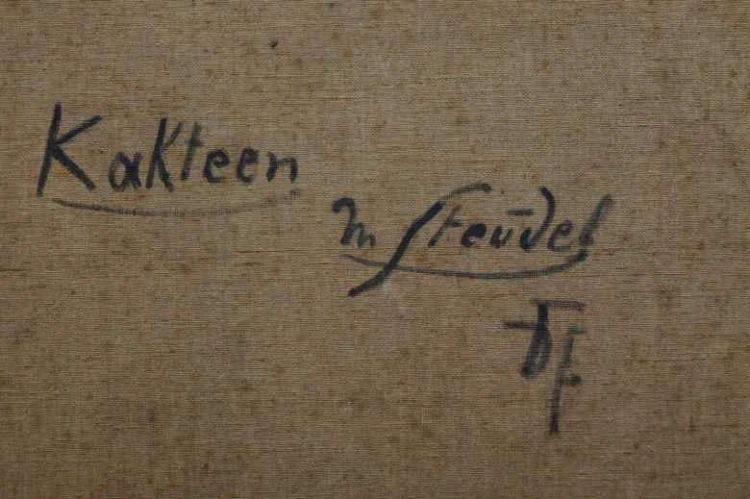 Kakteen
M Steudel